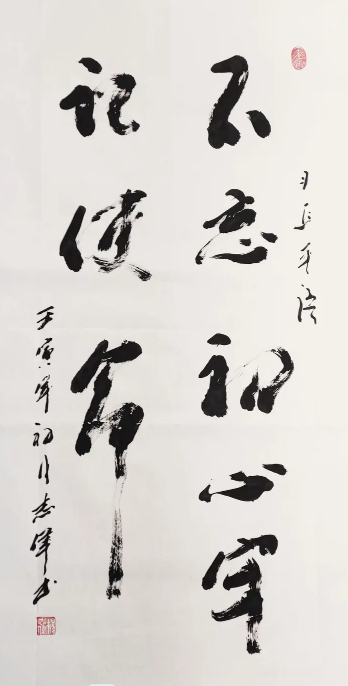 习近平语
不忘初心牢
记使命
壬寅年初月志书